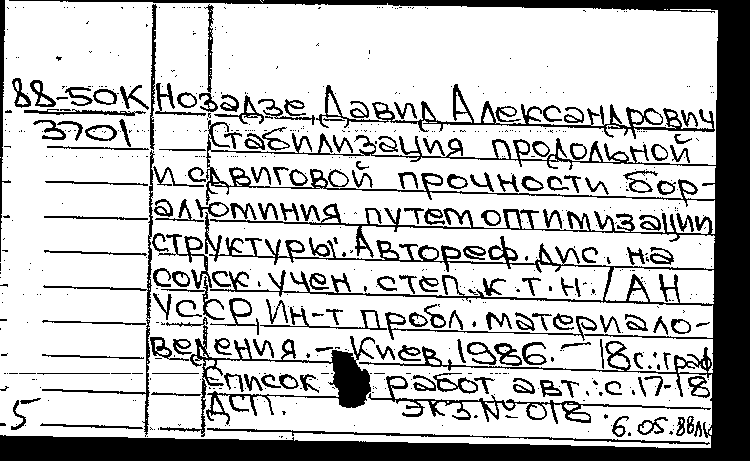 88-50К Нозадзе, Давид Александрович
3701 Стабилизация продольной
и сдвиговой прочности бор-
алюминия путем оптимизации
структуры: Автореф. дис. на
соиск. учен. степ. к.т.н. / АН
УССР, Ин-т пробл. материало-
ведения. - Киев, 1986. - 18с.: граф
Список работ авт.: с. 17-18
ДСП. экз. № 018.
5 6.05.88